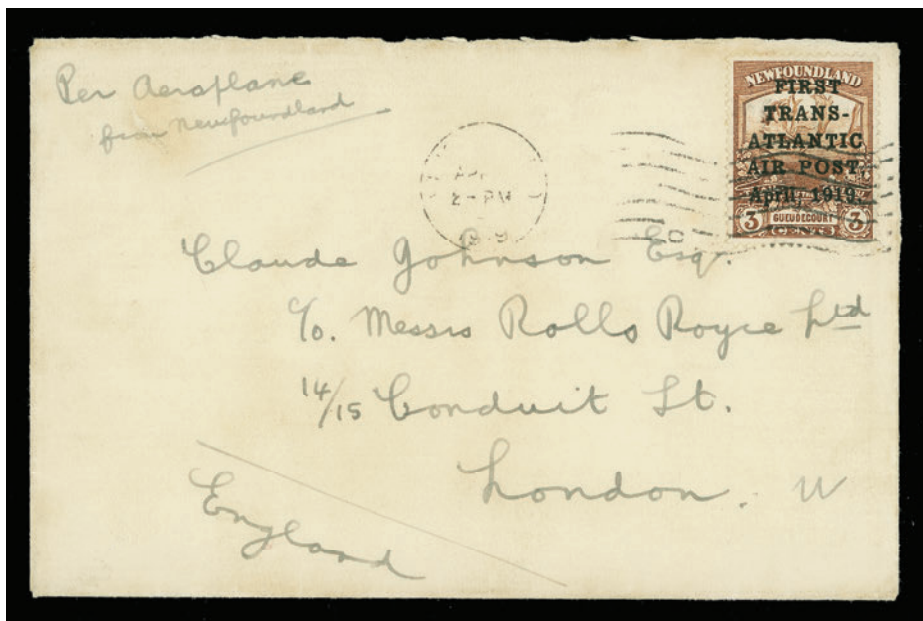 Per Aeroplane
from Newfoundland
NEWFOUNDLAND
FIRST
TRANS-
ATLANTIC
AIR POST,
April, 1919.
3 GUEUDECOURT 3
CENTS
2 - PM
Claude Johnson Esq.
c/o. Messrs Rolls Royce Ltd
14/15 Conduit St.
London. W
England